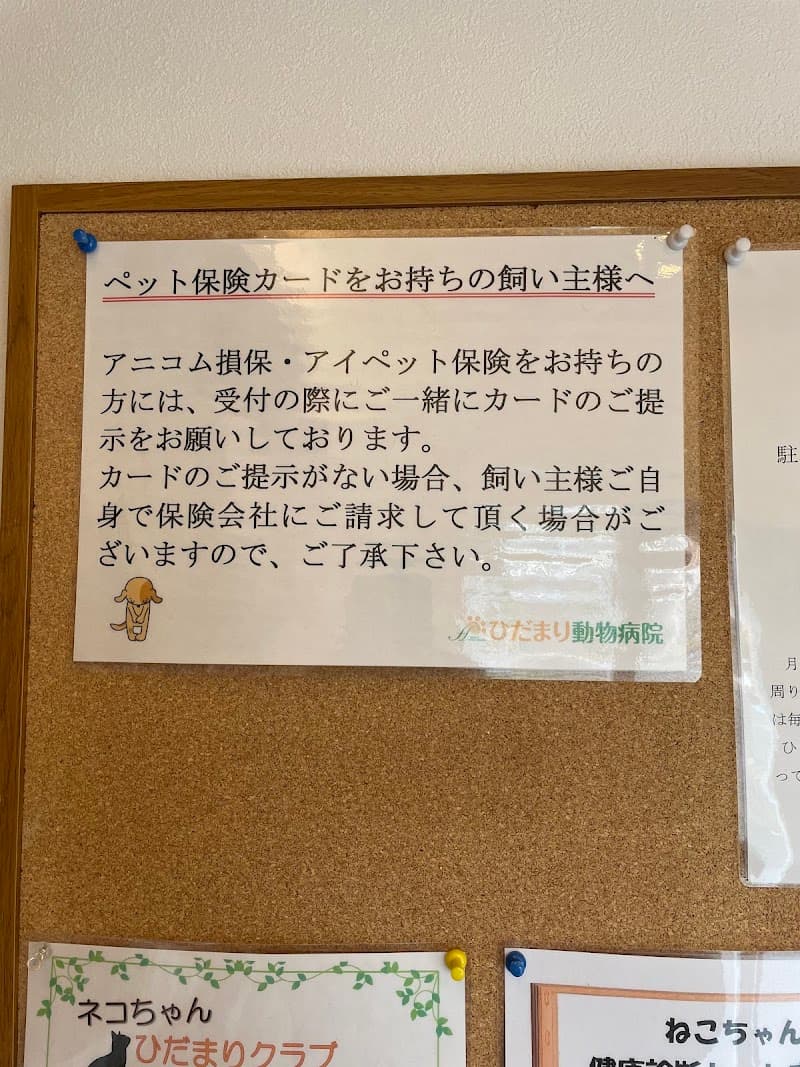 ペット保険カードをお持ちの飼い主様へ
アニコム損保・アイペット保険をお持ちの
方には、受付の際にご一緒にカードのご提
示をお願いしております。
カードのご提示がない場合、飼い主様ご自
身で保険会社にご請求して頂く場合がご
ざいますので、ご了承下さい。
ひだまり動物病院
駐
月
周り
は毎
ひ
って
ネコちゃん
ひだまりクラブ
ねこちゃん
健康診断